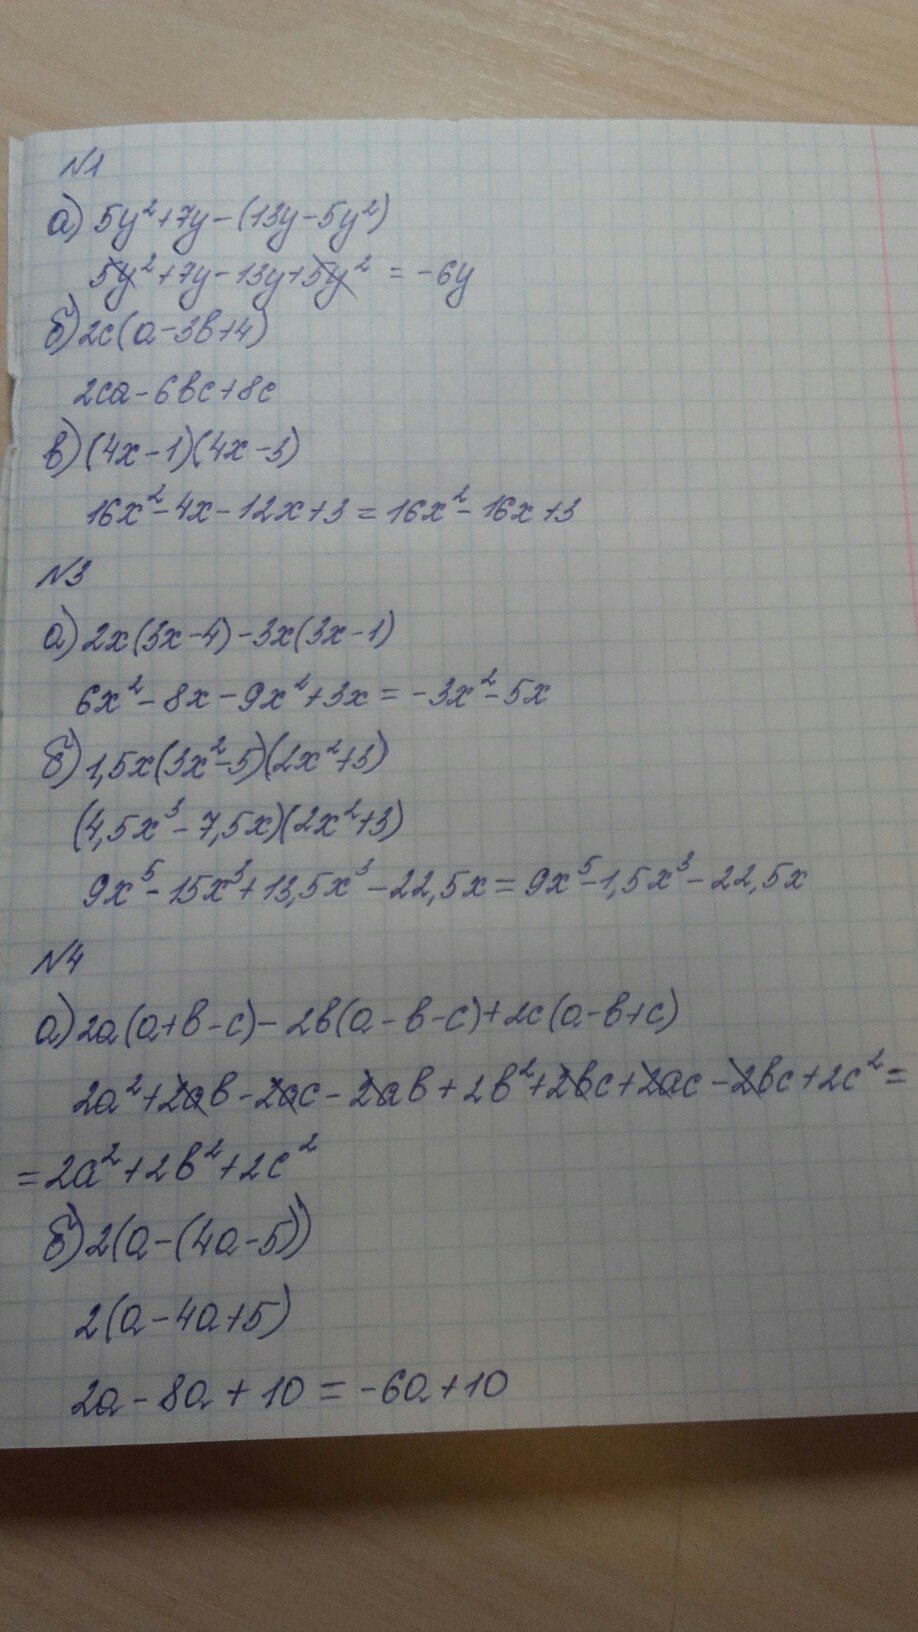 №1
а) 5y²+7y-(13y-5y²)
5y²+7y-13y+5y² = -6y
б) 2c(a-3b+4)
2ca-6bc+8c
в) (4x-1)(4x-3)
16x²-4x-12x+3=16x²-16x+3
№3
а) 2x(3x-4)-3x(3x-1)
6x²-8x-9x²+3x=-3x²-5x
б) 1,5x(3x²-5)(2x²+3)
(4,5x³-7,5x)(2x²+3)
9x⁵-15x³+13,5x³-22,5x=9x⁵-1,5x³-22,5x
№4
а) 2a(a+b-c)-2b(a-b-c)+2c(a-b+c)
2a²+2ab-2ac-2ab+2b²+2bc+2ac-2bc+2c²=
=2a²+2b²+2c²
б) 2(a-(4a-5))
2(a-4a+5)
2a-8a+10=-6a+10